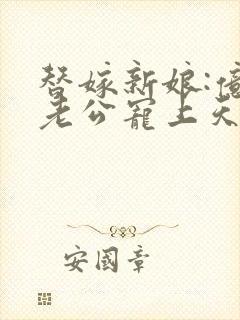 替嫁新娘:億
老公寵上天
安國章